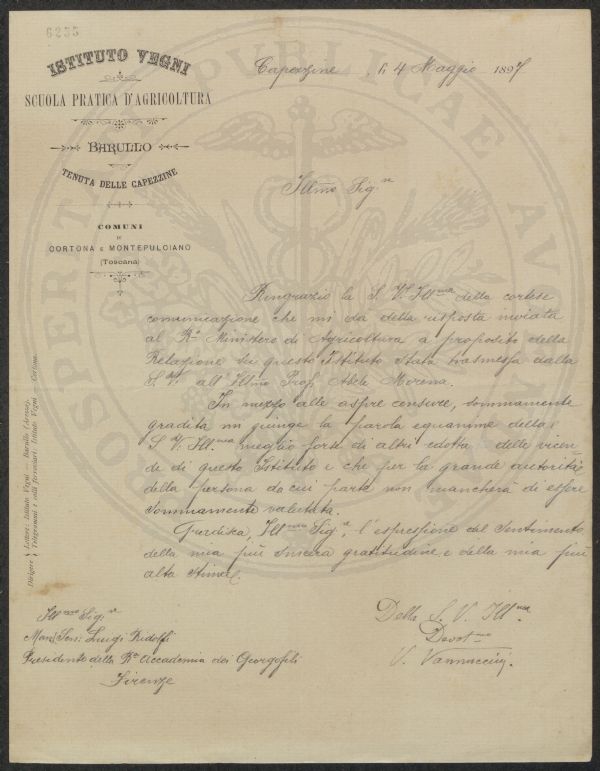 6235
ISTITUTO VEGNI
SCUOLA PRATICA D'AGRICOLTURA
BARULLO
TENUTA DELLE CAPEZZINE
COMUNI
DI
CORTONA E MONTEPULCIANO
(Toscana)
Capezzine, li 4 Maggio 1897
Illmo Sigre
Ringrazio la S. V. Illma della cortese
comunicazione che mi dà della risposta inviata
al Ro Ministero di Agricoltura a proposito della
Relazione su questo Istituto stata trasmessa dalla
S. V. all'Illmo Prof. Abele Morena.
In mezzo alle aspre censure, sommamente
gradita mi giunge la parola equanime della
S. V. Illma meglio forse di altri edotta delle vicen-
de di questo Istituto e che per la grande autorità
della persona da cui parte non mancherà di essere
sommamente valutata.
Gradisca, Illmo Sigre, l'espressione del sentimento
della mia più sincera gratitudine e della mia più
alta stima.
Della S. V. Illma
Devotmo
V. Vannuccini
Illmo Sigre
March Sen: Luigi Ridolfi
Presidente della Ra Accademia dei Georgofili
Firenze
Dirigere
Lettere: Istituto Vegni — Barullo (Arezzo).
Telegrammi e colli ferroviari: Istituto Vegni — Cortona.
PROSPERITATI PUBLICAE AU